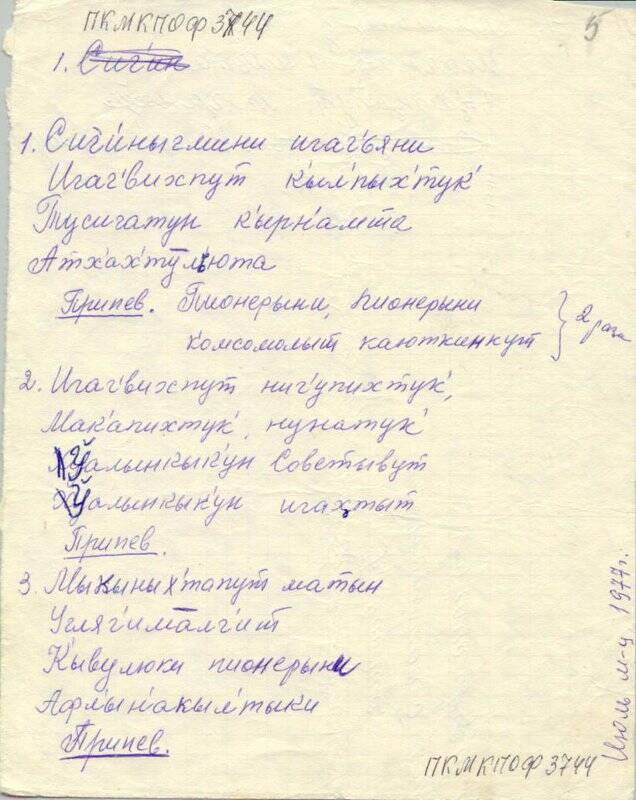 ПКМКПОФ 3744
5
1. Сиг'ин
1. Сиг'иныгмини игаг'ъяни
Игаг'вихпут к'ыл'пых'тук'
Тусигатун к'ырн'амта
Атх'ах'тул'ъюта
Припев. Пионерыни, пионерыни
комсомолыт каюткинкут } 2 раза
2. Игаг'вихпут ниг'упихтук',
Мак'апихтук', нунатук'
Л'ўалынкык'ун Советывут
Х'ўалынкык'ун игах'тыт
Припев.
3. Мыкыных'тапут матын
Угляг'ималг'ит
К'ывулюки пионерыни
Афл'ын'акыл'тыки
Припев.
Июль м-ц 1977 г.
ПКМКПОФ 3744